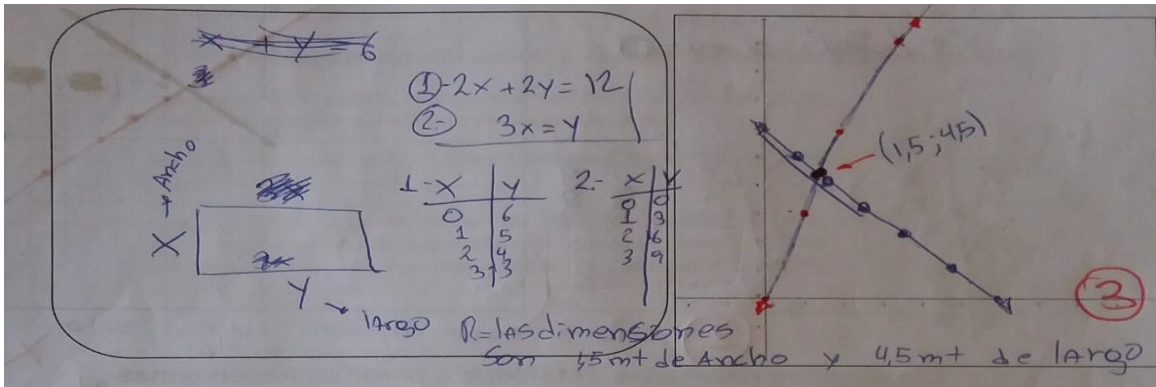 X + Y = 6
①-2x + 2y = 12
②- 3x = y
X → Ancho
Y → largo
1- X | Y
0 | 6
1 | 5
2 | 4
3 | 3
2.- X | Y
0 | 0
1 | 3
2 | 6
3 | 9
(1,5 ; 4,5)
3
R= las dimensiones
Son 1,5 mt de Ancho y 4,5 mt de largo